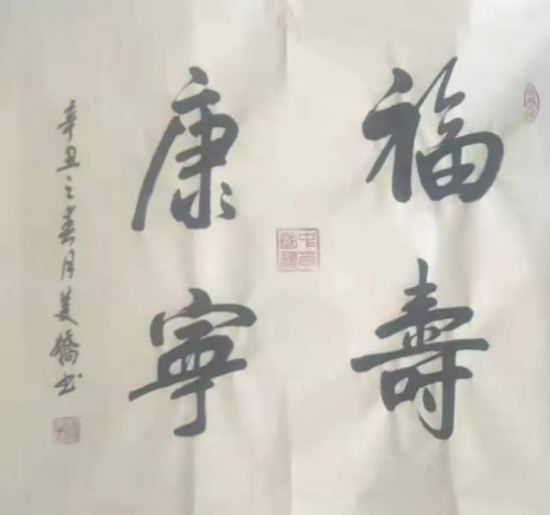 福壽
康寧
辛丑之春月美嬌书